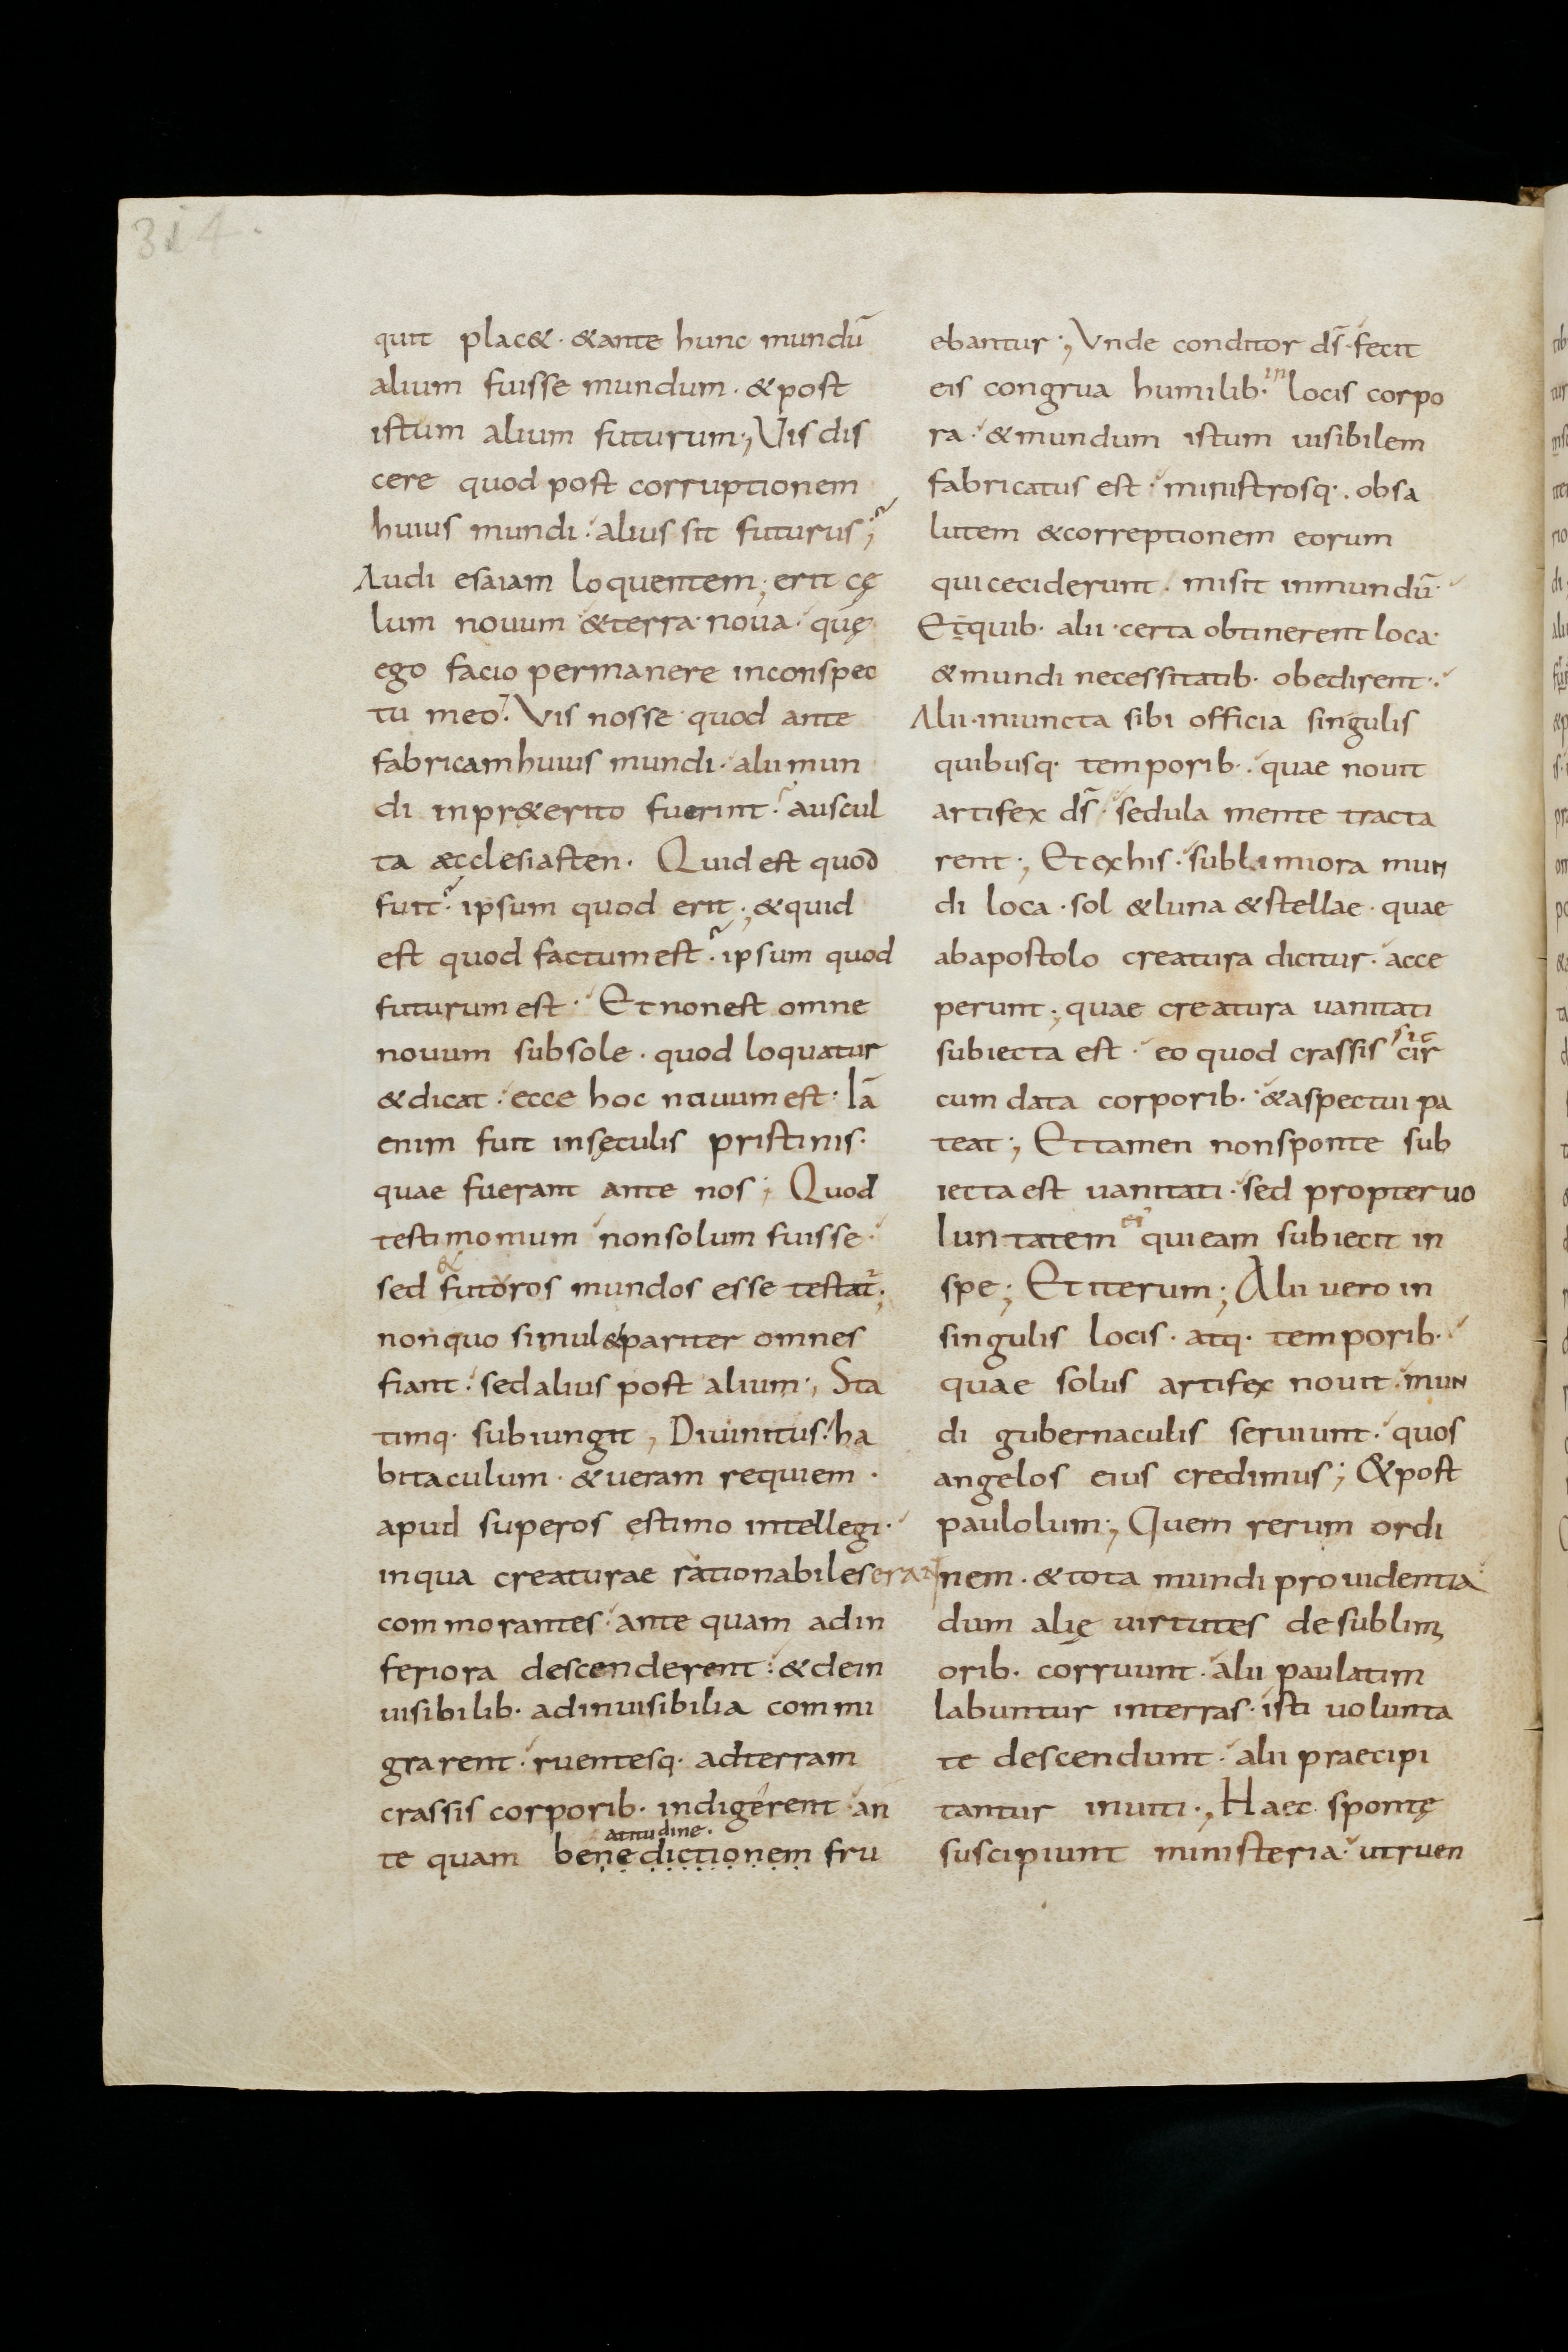 314.
quit plac&· &ante hunc mundū
alium fuisse mundum· &post
istum alium futurum·, Vis dis
cere quod post corruptionem
huius mundi· alius sit futurus;
Audi esaiam loquentem; erit cę
lum nouum &terra noua· quę
ego facio permanere inconspec
tu meo. Vis nosse quod ante
fabricam huius mundi· alii mun
di inpr&erito fuerint· auscul
ta æcclesiasten· Quid est quod
fuit· ipsum quod erit; &quid
est quod factum est· ipsum quod
futurum est· Et non est omne
nouum subsole· quod loquatur
&dicat· ecce hoc nouum est· Iā
enim fuit insęculis pristinis·
quae fuerant ante nos; Quod
testimonium nonsolum fuisse·
&
sed futuros mundos esse testat̄;
nonquo simul &pariter omnes
fiant· sed alius post alium·, Sta
timq· subiungit, Diuinitus· ha
bitaculum· &ueram requiem·
apud superos estimo intellegi·
inqua creaturae rationabiles eran
commorantes· ante quam adin
feriora descenderent: &dein
uisibilib· adinuisibilia commi
grarent· ruentesq· adterram
crassis corporib· indigerent· an
atitudine·
te quam benedictionem fru
ebantur·, Vnde conditor ds̄· fecit
in
eis congrua humilib· locis corpo
ra· &mundum istum uisibilem
fabricatus est· ministrosq·· obsa
lutem &correptionem eorum
qui ceciderunt· misit inmundū·
Et quib· alii· certa obtinerent loca·
&mundi necessitatib· obedirent·
Alii· iniuncta sibi officia singulis
quibusq· temporib·· quae nouit
artifex ds̄· sedula mente tracta
rent·, Et ex his· sublimiora mun
di loca· sol &luna &stellae· quae
abapostolo creatura dicitur· acce
perunt·, quae creatura uanitati
sic
subiecta est· eo quod crassis cir
cum data corporib·· &aspectui pa
teat·, Et tamen nonsponte sub
iecta est uanitati· sed propter uo
ei
luntatem qui eam subiecit in
spe; Et iterum; Alii uero in
singulis locis· atq· temporib·
quae solus artifex nouit· mun
di gubernaculis seruiunt· quos
angelos eius credimus; &post
paulolum·, Quem rerum ordi
nem· &tota mundi prouidentia
dum alię uirtutes de sublimi
orib· corruunt· alii paulatim
labuntur interras· isti uolunta
te descendunt· alii praecipi
tantur inuiti·, Haec spontę
suscipiunt ministeria· ut ruen